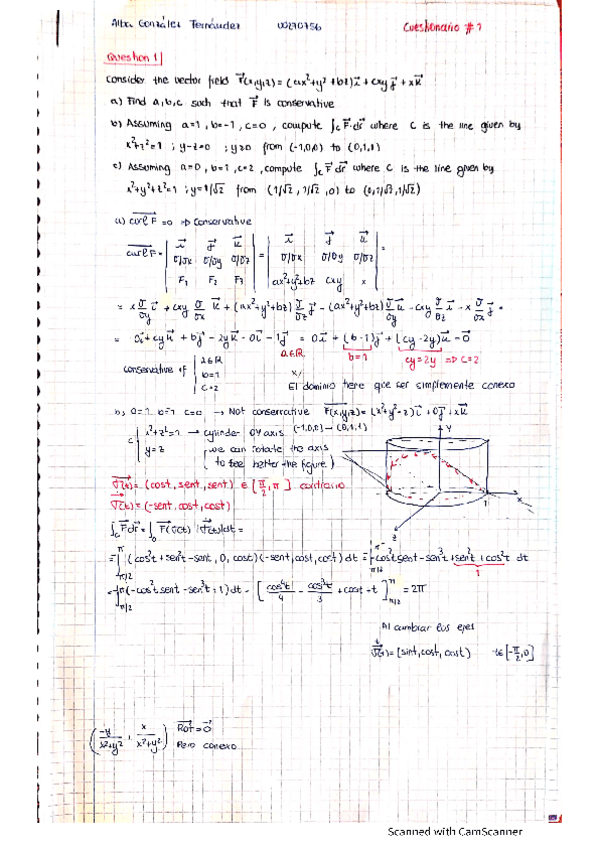 Alba González Fernández 00290756 Cuestionario #1
Question 1
Consider the vector field F(x,y,z)=(ax²+y²+bz)i+cxyj+xk
a) Find a,b,c such that F is conservative
b) Assuming a=1, b=-1, c=0, compute ∫c F·dr where C is the line given by
x²+z²=1 ; y-z=0 ; y≥0 from (-1,0,0) to (0,1,1)
c) Assuming a=0, b=1, c=2, compute ∫c F·dr where C is the line given by
x²+y²+z²=1 ; y=1/√2 from (1/√2, 1/√2, 0) to (0,1/√2,1/√2)
a) curl F=0 => Conservative
curl F= | i j k | = | i j k | =
∂/∂x ∂/∂y ∂/∂z ∂/∂x ∂/∂y ∂/∂z
F1 F2 F3 ax²+y²+bz cxy x
= x ∂/∂y i + cxy ∂/∂x k + (ax²+y²+bz) ∂/∂z j - (ax²+y²+bz) ∂/∂y k - cxy ∂/∂z i - x ∂/∂x j =
= 0i + cyk + bj - 2yk - 0i - 1j = 0i + (b-1)j + (cy-2y)k = 0
a∈R b=1 cy=2y => c=2
conservative if a∈R
b=1
c=2
El dominio tiene que ser simplemente conexo
b) a=1 b=-1 c=0 → Not conservative F(x,y,z)=(x²+y²-z)i+0j+xk
C x²+z²=1 → cylinder OY axis (-1,0,0) - (0,1,1)
y=z (we can rotate the axis
to see better the figure)
Y
x
z
1
σ(t)=(cost,sent,sent) ∈[π/2,π]
σ(t)=(-sent,cost,cost)
∫c F dr = ∫ F(σ(t)) |σ(t)| dt=
=∫ (cos²t+sen²t-sent, 0, cost)(-sent,cost,cost) dt = ∫ -cos²t sent-sen³t+sen²t+cos²t dt
π/2 π 1
=∫(-cos²t sent-sen³t+1)dt
=2π
Al cambiar los ejes
σ(t)=(sint,cost,cost) t∈[-π/2,0]
(-y/x²+y², x/x²+y²) Rot=0
Pero conexo
Scanned with CamScanner